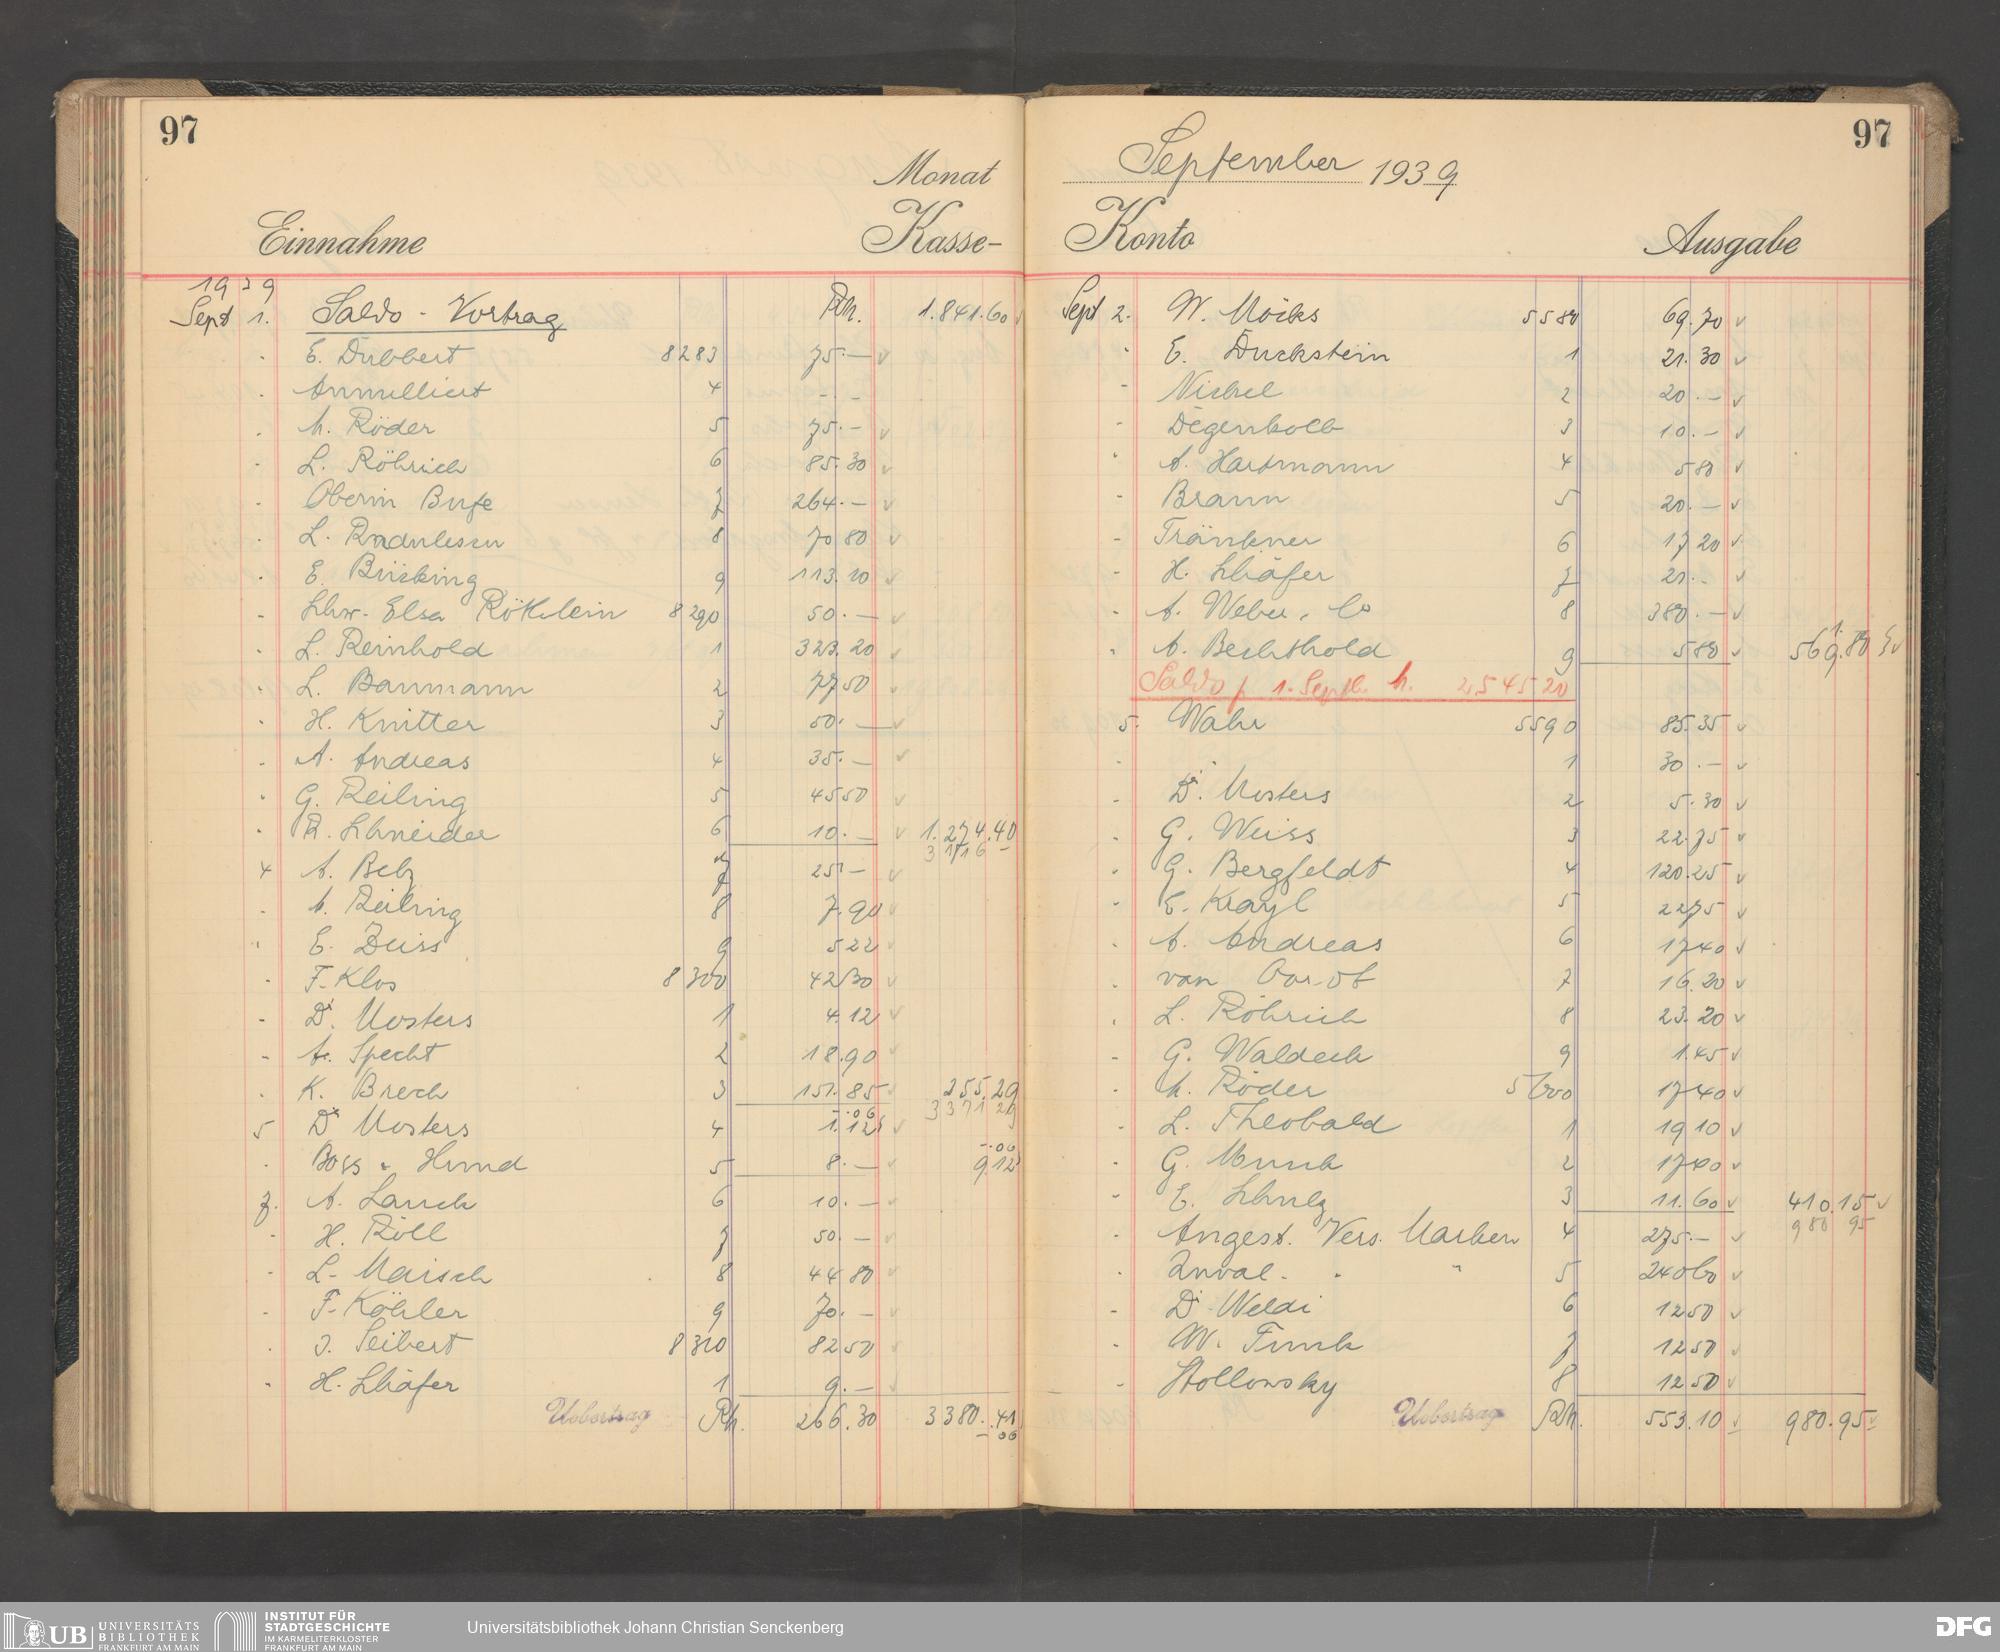 97
Monat
Einnahme Kasse-
1939
Sept 1. Saldo - Vortrag Rh. 1.841.60
E. Dubbert 8283 75.—
Annulliert 4 - -
h. Röder 5 75.—
L. Röhrich 6 85.30
Oberin Bufe 7 264.—
L. Radulescu 8 70 80
E. Brücking 9 113.10
Schw. Elsa Röthlein 8290 50.—
L. Reinhold 1 323.20
L. Baumann 2 77 50
H. Knitter 3 50.—
A. Andreas 4 35.—
G. Reiling 5 45 50
R. Schneider 6 10.— 1.274.40
3 116 —
4 A. Belz 7 25.—
A. Reiling 8 7.90
E. Zeiss 9 5 22
F. Klos 8300 42 30
Dr. Mosters 1 4.12
A. Specht 2 18.90
K. Brech 3 151.85 255.29
-.06 3371 29
5 Dr Mosters 4 1.12
-.06
Boss & Hund 5 8.— 9.12
7. A. Lauck 6 10.—
H. Röll 7 50.—
L. Maisch 8 44 80
F. Köhler 9 70.—
J. Seibert 8310 82 50
H. Schäfer 1 9.—
Uebertrag Rh. 266.30 3380.41
-.06
97
September 1939
Konto Ausgabe
Sept 2. W. Möcks 5580 69.70
E. Duckstein 1 21.30
Nickel 2 20.—
Degenkolb 3 10.—
A. Hartmann 4 5 80
Braun 5 20.—
Tränkner 6 17 20
H. Schäfer 7 21.-
A. Weber & Co 8 380.—
A. Bechthold 9 5 80 569.80
Saldo p 1. Septb. h. 2545 20
5. Wahr 5590 85.35
1 30.—
Dr. Mosters 2 5.30
G. Weiss 3 22.75
G. Bergfeldt 4 120.25
E. Krayl 5 22 75
A. Andreas 6 17 40
van 7 16.20
L. Röhrich 8 23.20
G. Waldeck 9 1.45
h. Röder 5600 17 40
L. Theobald 1 19 10
G. Munk 2 17 40
E. Schulz 3 11.60 410.15
980 95
Angest. Vers. Marken 4 275.—
Inval. " " 5 240 60
Dr. Weldi 6 12 50
W. Funk 7 12 50
Stollowsky 8 12 50
Uebertrag Rh. 553.10 980.95
UB UNIVERSITÄTS BIBLIOTHEK FRANKFURT AM MAIN
INSTITUT FÜR STADTGESCHICHTE IM KARMELITERKLOSTER FRANKFURT AM MAIN
Universitätsbibliothek Johann Christian Senckenberg
DFG